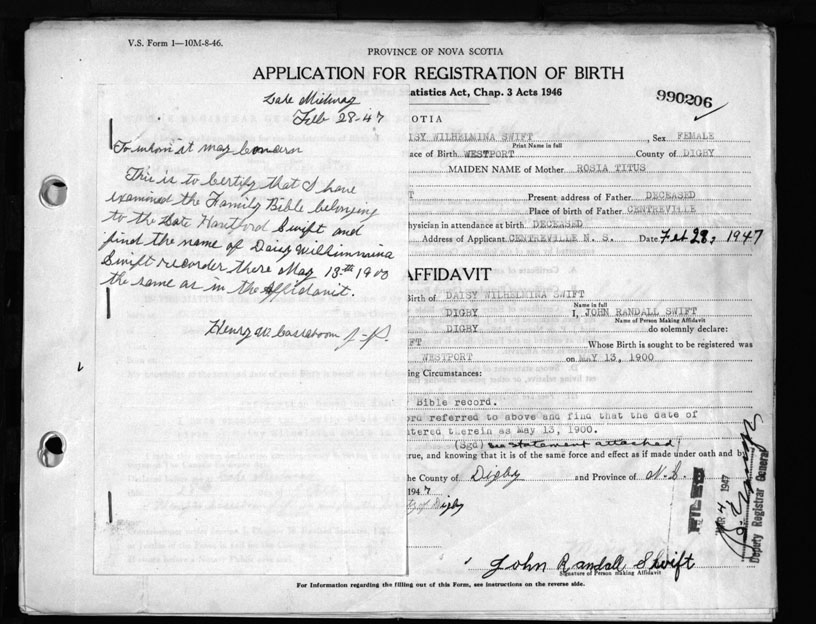 V.S. Form 1—10M-8-46.
PROVINCE OF NOVA SCOTIA
APPLICATION FOR REGISTRATION OF BIRTH
tatistics Act, Chap. 3 Acts 1946
990206
Feb 28-47
To whom it may
This is to Certify that I have
examined the Family Bible belonging
to the Late Hartford Swift and
find the name of Daisy
Swift recorder there May 13th 1900
the same as in the Affidavit.
Henry
COTIA
ISY WILHELMINA SWIFT, Sex FEMALE
Print Name in full
ace of Birth WESTPORT County of DIGBY
MAIDEN NAME of Mother ROSIA TITUS
T Present address of Father DECEASED
Place of birth of Father CENTREVILLE
hysician in attendance at birth DECEASED
Address of Applicant CENTREVILLE N. S. Date Feb 28, 1947
AFFIDAVIT
Birth of DAISY WILHELMINA SWIFT
Name in full
DIGBY I, JOHN RANDALL SWIFT
Name of Person Making Affidavit
DIGBY do solemnly declare:
FT Whose Birth is sought to be registered was
WESTPORT on MAY 13, 1900
ing Circumstances:
Bible record.
ord referred to above and find that the date of
tered therein as May 13, 1900.
(Sgd) see statement attached
true, and knowing that it is of the same force and effect as if made under oath and by
he County of Digby and Province of N.S.
1947
ty of Digby
FILED
4 1947
Deputy Registrar General
John Randall Swift
Signature of Person making Affidavit
For Information regarding the filling out of this Form, see instructions on the reverse side.